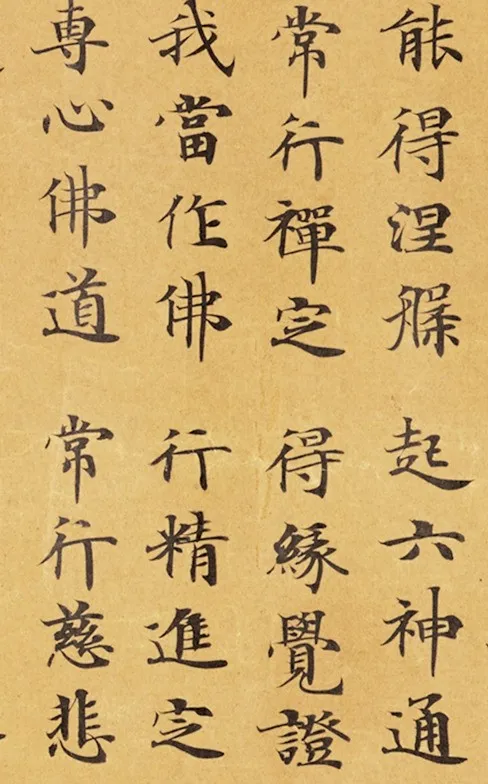 能得涅槃 起六神通
常行禪定 得緣覺證
我當作佛 行精進定
專心佛道 常行慈悲